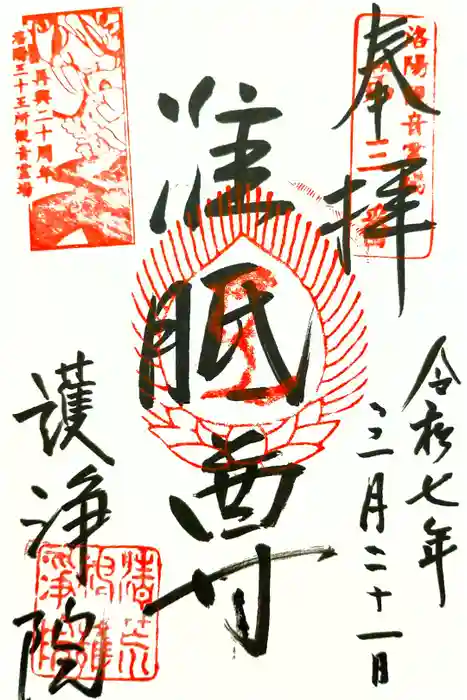 奉拝
洛陽観音霊場
第三番
令和七年
三月二十一月
准胝尊
再興二十周年
洛陽三十三所観音霊場
護浄院